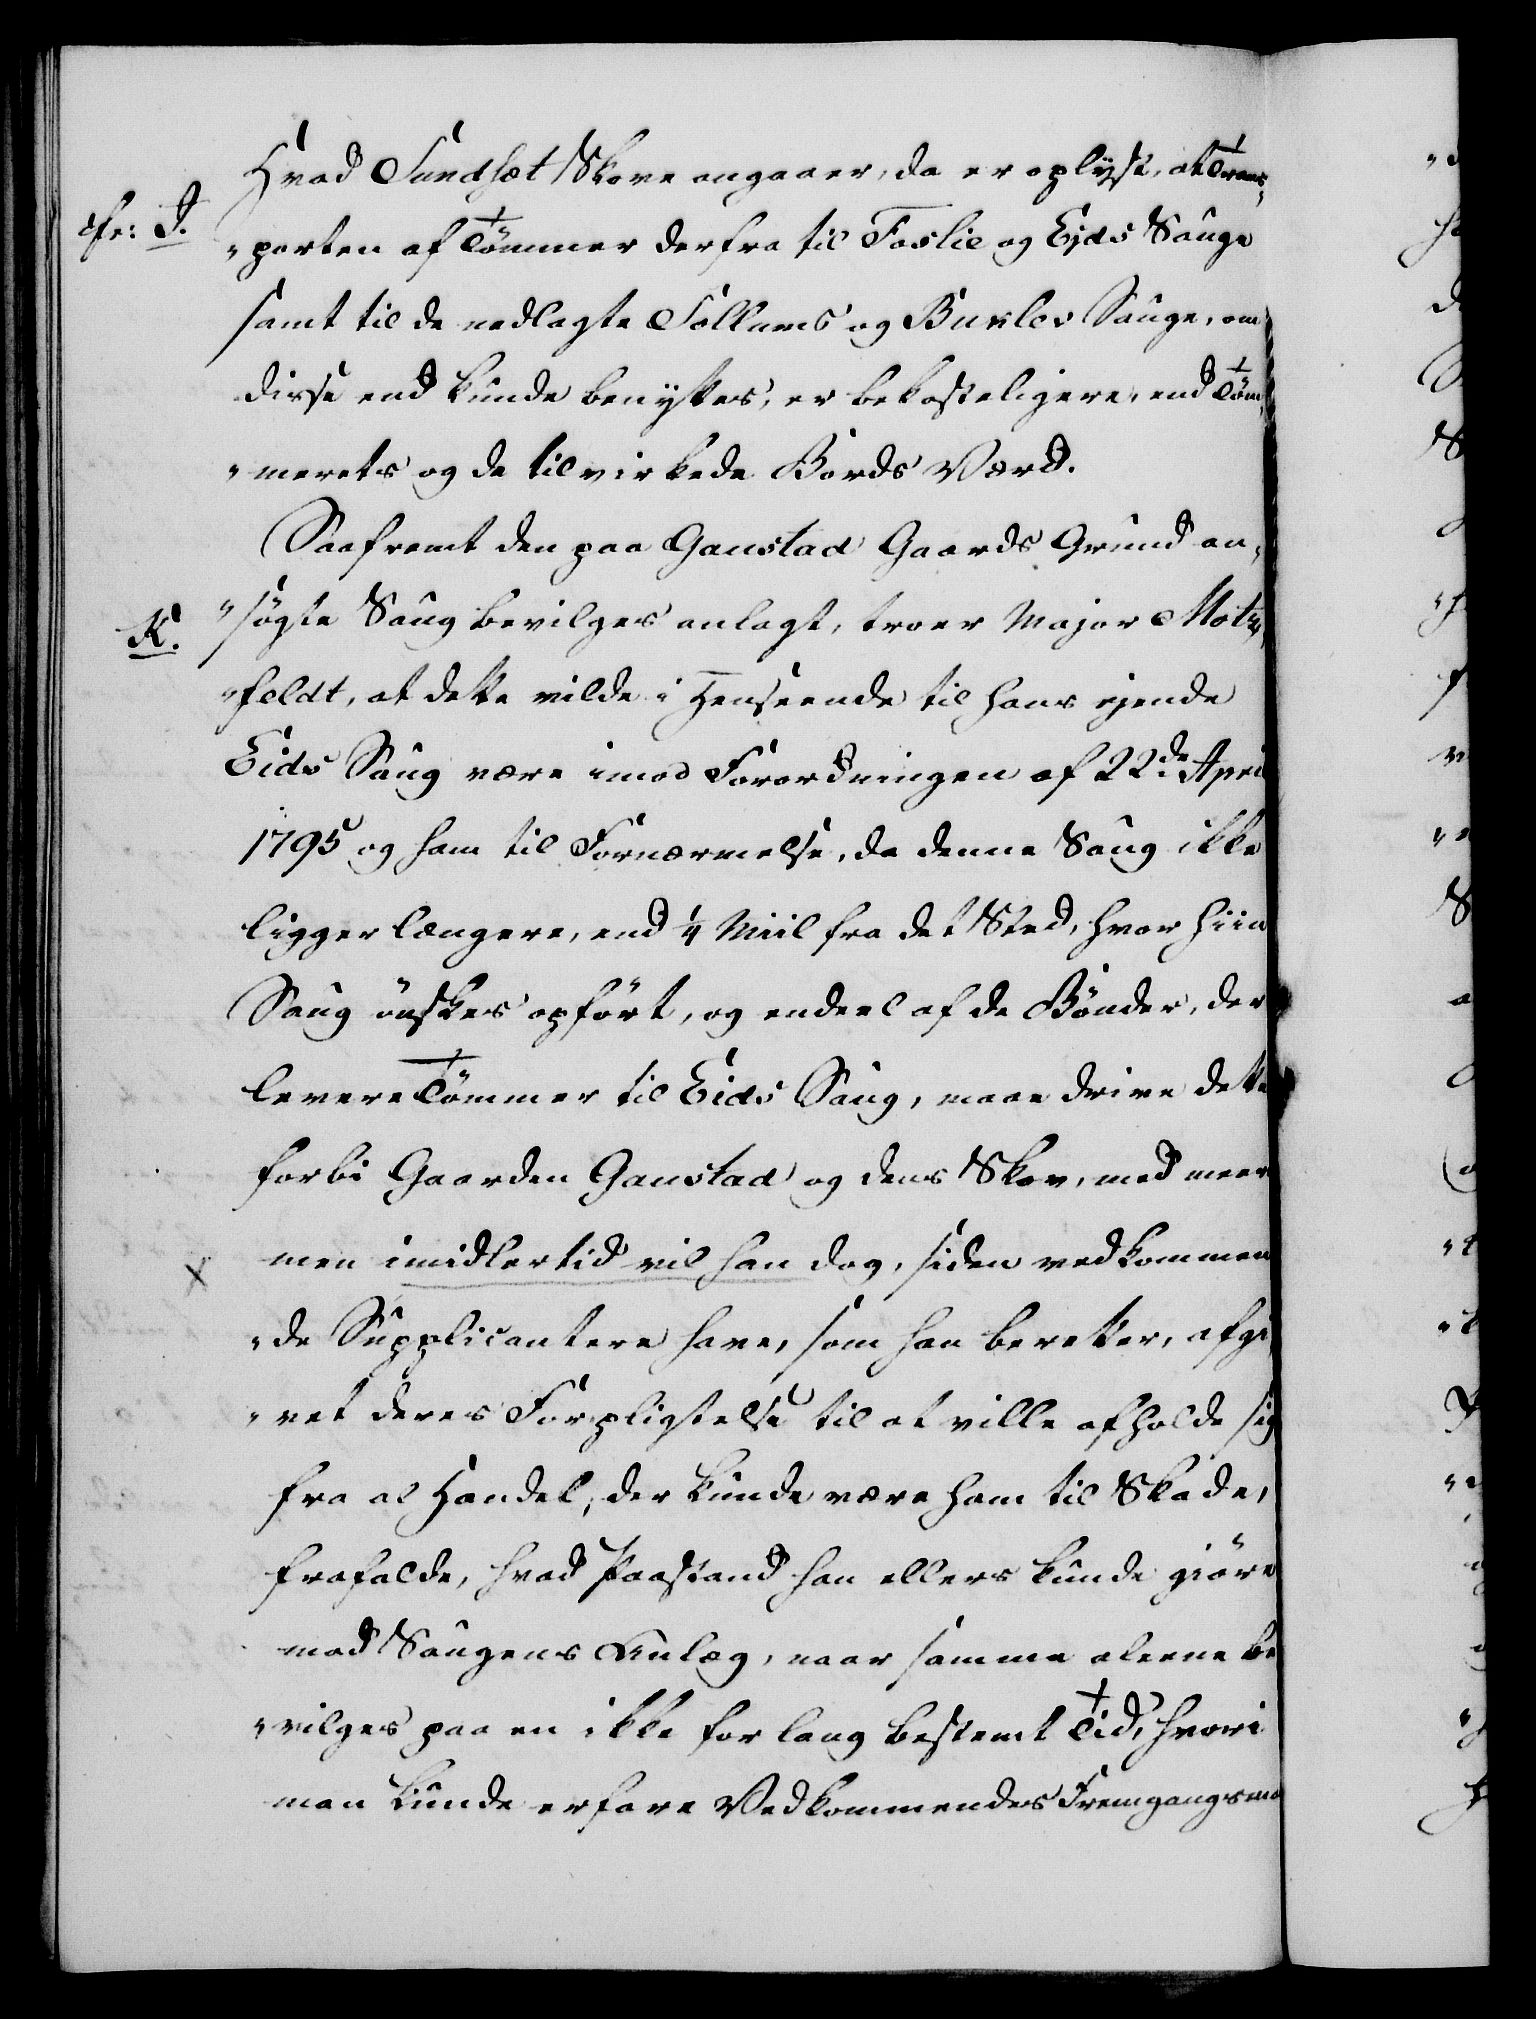 Hvad Sundsæt Skove angaaer, da er oplyst, at Trans-
cfr: J.
"porten af Tömmer derfra til Foslie og Ejds Sauge
samt til de nedlagte Tollums og Buvlos Sauge, om
disse end kunde benyttes, er bekosteligere, end Töm-
"merets og de tilvirkede Bords Værd.
Saafremt den paa Ganstad Gaards Grund an-
K.
"søgte Saug bevilges anlagt, troer Major Motz-
"feldt, at dette vilde i Henseende til hans ejende
Eids Saug være imod Forordningen af 22de April
1795 og ham til Fornærmelse, da denne Saug ikke
ligger længere, end ¼ Miil fra det Sted, hvor hiin
Saug önskes opfört, og endeel af de Bönder, der
levere Tömmer til Eids Saug, maae drive dette
forbi Gaarden Ganstad og dens Skov, med meere
x
men imidlertid vil han dog, siden vedkommen
"de Supplicantere have, som han beretter, afgi-
"vet deres Forpligtelse til at ville afholde sig
fra al Handel, der kunde være ham til Skade,
frafalde, hvad Paastand han ellers kunde giöre
mod Saugens Anlæg, naar samme aleene be
"vilges paa en ikke for lang bestemt Tid, hvori
man kunde erfare Vedkommendes Fremgangsmaa